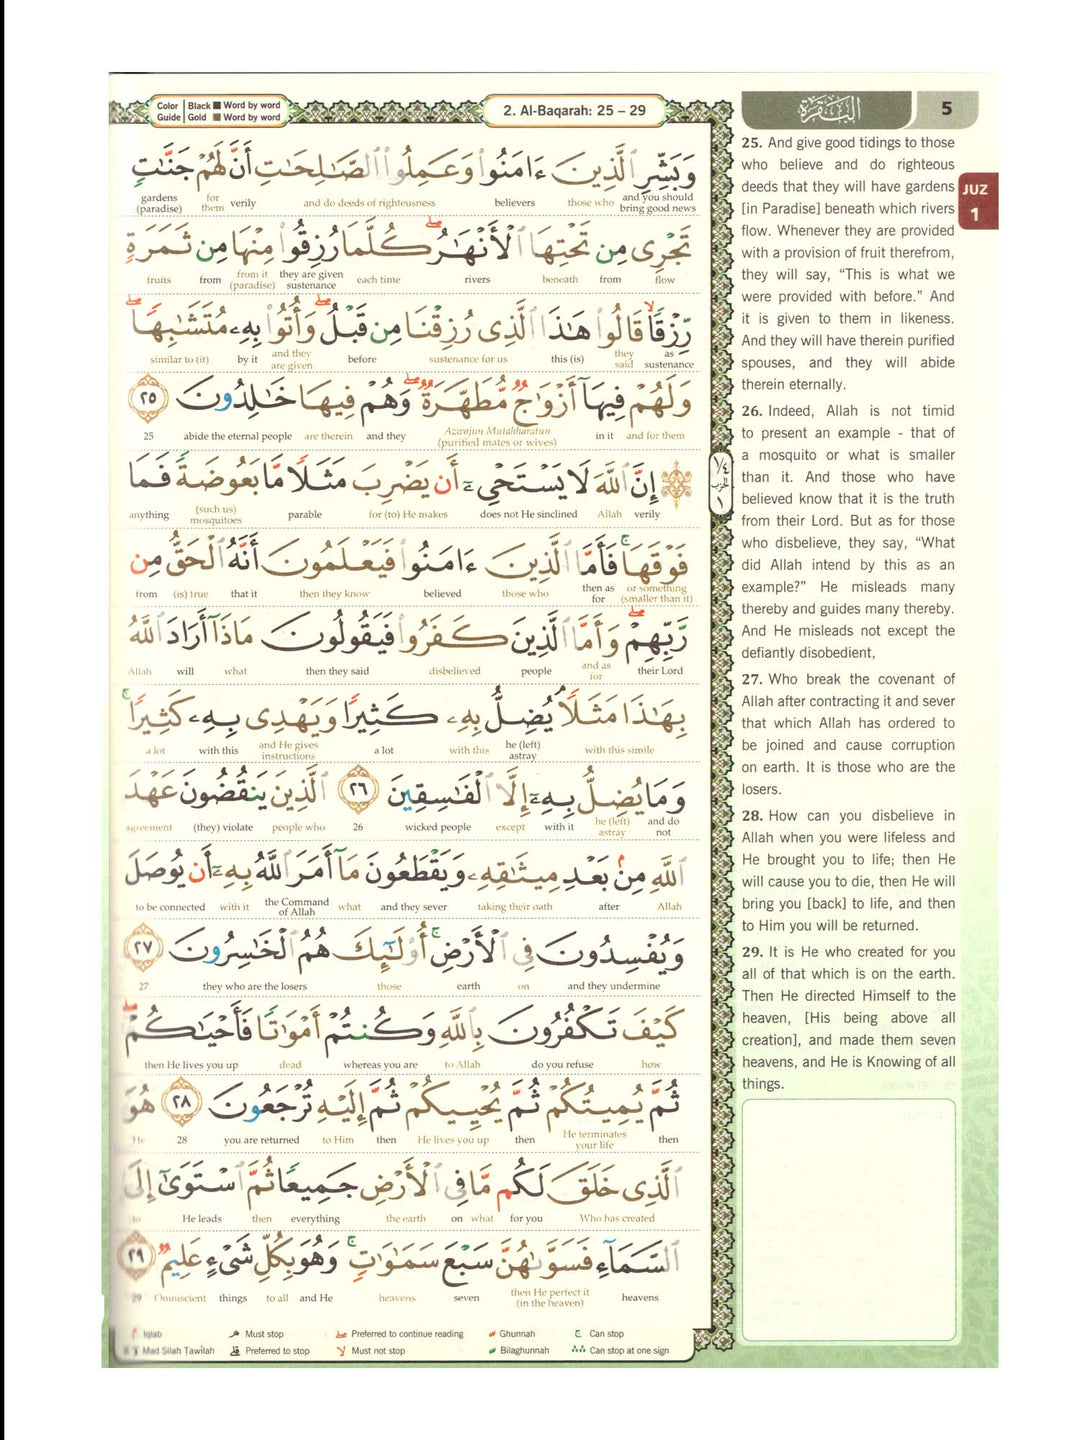 Color Guide | Black ■ Word by word
Gold ■ Word by word
2. Al-Baqarah: 25 – 29
البقرة
5
JUZ 1
وَبَشِّرِ الَّذِينَ ءَامَنُوا وَعَمِلُوا الصَّـٰلِحَـٰتِ أَنَّ لَهُمْ جَنَّـٰتٍ
and you should bring good news those who believers and do deeds of righteousness verily for them gardens (paradise)
تَجْرِى مِن تَحْتِهَا الْأَنْهَـٰرُ ۖ كُلَّمَا رُزِقُوا مِنْهَا مِن ثَمَرَةٍ
flow from beneath rivers each time they are given sustenance from it (paradise) from fruits
رِّزْقًا ۙ قَالُوا هَـٰذَا الَّذِى رُزِقْنَا مِن قَبْلُ ۖ وَأُتُوا بِهِۦ مُتَشَـٰبِهًا ۖ
as sustenance they said this (is) sustenance for us before and they are given by it similar to (it)
وَلَهُمْ فِيهَآ أَزْوَٰجٌ مُّطَهَّرَةٌ ۖ وَهُمْ فِيهَا خَـٰلِدُونَ ٢٥
and for them in it Azwajun Mutahharatun (purified mates or wives) and they are therein abide the eternal people 25
إِنَّ اللَّهَ لَا يَسْتَحْىِۦٓ أَن يَضْرِبَ مَثَلًا مَّا بَعُوضَةً فَمَا
verily Allah does not He sinclined for (to) He makes parable (such us) mosquitoes anything
فَوْقَهَا ۚ فَأَمَّا الَّذِينَ ءَامَنُوا فَيَعْلَمُونَ أَنَّهُ الْحَقُّ مِن
or something (smaller than it) then as for those who believed then they know that it (is) true from
رَّبِّهِمْ ۖ وَأَمَّا الَّذِينَ كَفَرُوا فَيَقُولُونَ مَاذَآ أَرَادَ اللَّهُ
their Lord and as for people disbelieved then they said what will Allah
بِهَـٰذَا مَثَلًا ۘ يُضِلُّ بِهِۦ كَثِيرًا وَيَهْدِى بِهِۦ كَثِيرًا ۚ
with this simile he (left) astray with this a lot and He gives instructions with this a lot
وَمَا يُضِلُّ بِهِۦٓ إِلَّا الْفَـٰسِقِينَ ٢٦ الَّذِينَ يَنقُضُونَ عَهْدَ
and do not he (left) astray with it except wicked people 26 people who (they) violate agreement
اللَّهِ مِنۢ بَعْدِ مِيثَـٰقِهِۦ وَيَقْطَعُونَ مَآ أَمَرَ اللَّهُ بِهِۦٓ أَن يُوصَلَ
Allah after taking their oath and they sever what the Command of Allah with it to be connected
وَيُفْسِدُونَ فِى الْأَرْضِ ۚ أُولَـٰٓئِكَ هُمُ الْخَـٰسِرُونَ ٢٧
and they undermine on earth those they who are the losers 27
كَيْفَ تَكْفُرُونَ بِاللَّهِ وَكُنتُمْ أَمْوَٰتًا فَأَحْيَـٰكُمْ ۖ
how do you refuse to Allah whereas you are dead then He lives you up
ثُمَّ يُمِيتُكُمْ ثُمَّ يُحْيِيكُمْ ثُمَّ إِلَيْهِ تُرْجَعُونَ ٢٨ هُوَ
then He terminates your life then He lives you up then to Him you are returned 28 He
الَّذِى خَلَقَ لَكُم مَّا فِى الْأَرْضِ جَمِيعًا ثُمَّ اسْتَوَىٰٓ إِلَى
Who has created for you what on the earth everything then He leads to
السَّمَآءِ فَسَوَّىٰهُنَّ سَبْعَ سَمَـٰوَٰتٍ ۚ وَهُوَ بِكُلِّ شَىْءٍ عَلِيمٌ ٢٩
heavens then He perfect it (in the heaven) seven heavens and He to all things Omniscient 29
Iqlab Must stop Preferred to continue reading Ghunnah Can stop
Mad Silah Tawilah Preferred to stop Must not stop Bilaghunnah Can stop at one sign
25. And give good tidings to those
who believe and do righteous
deeds that they will have gardens
[in Paradise] beneath which rivers
flow. Whenever they are provided
with a provision of fruit therefrom,
they will say, “This is what we
were provided with before.” And
it is given to them in likeness.
And they will have therein purified
spouses, and they will abide
therein eternally.
26. Indeed, Allah is not timid
to present an example - that of
a mosquito or what is smaller
than it. And those who have
believed know that it is the truth
from their Lord. But as for those
who disbelieve, they say, “What
did Allah intend by this as an
example?” He misleads many
thereby and guides many thereby.
And He misleads not except the
defiantly disobedient,
27. Who break the covenant of
Allah after contracting it and sever
that which Allah has ordered to
be joined and cause corruption
on earth. It is those who are the
losers.
28. How can you disbelieve in
Allah when you were lifeless and
He brought you to life; then He
will cause you to die, then He will
bring you [back] to life, and then
to Him you will be returned.
29. It is He who created for you
all of that which is on the earth.
Then He directed Himself to the
heaven, [His being above all
creation], and made them seven
heavens, and He is Knowing of all
things.